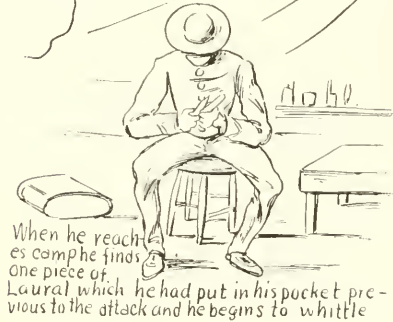 When he reach-
es camp he finds
one piece of
Laural which he had put in his pocket pre-
vious to the attack and he begins to whittle